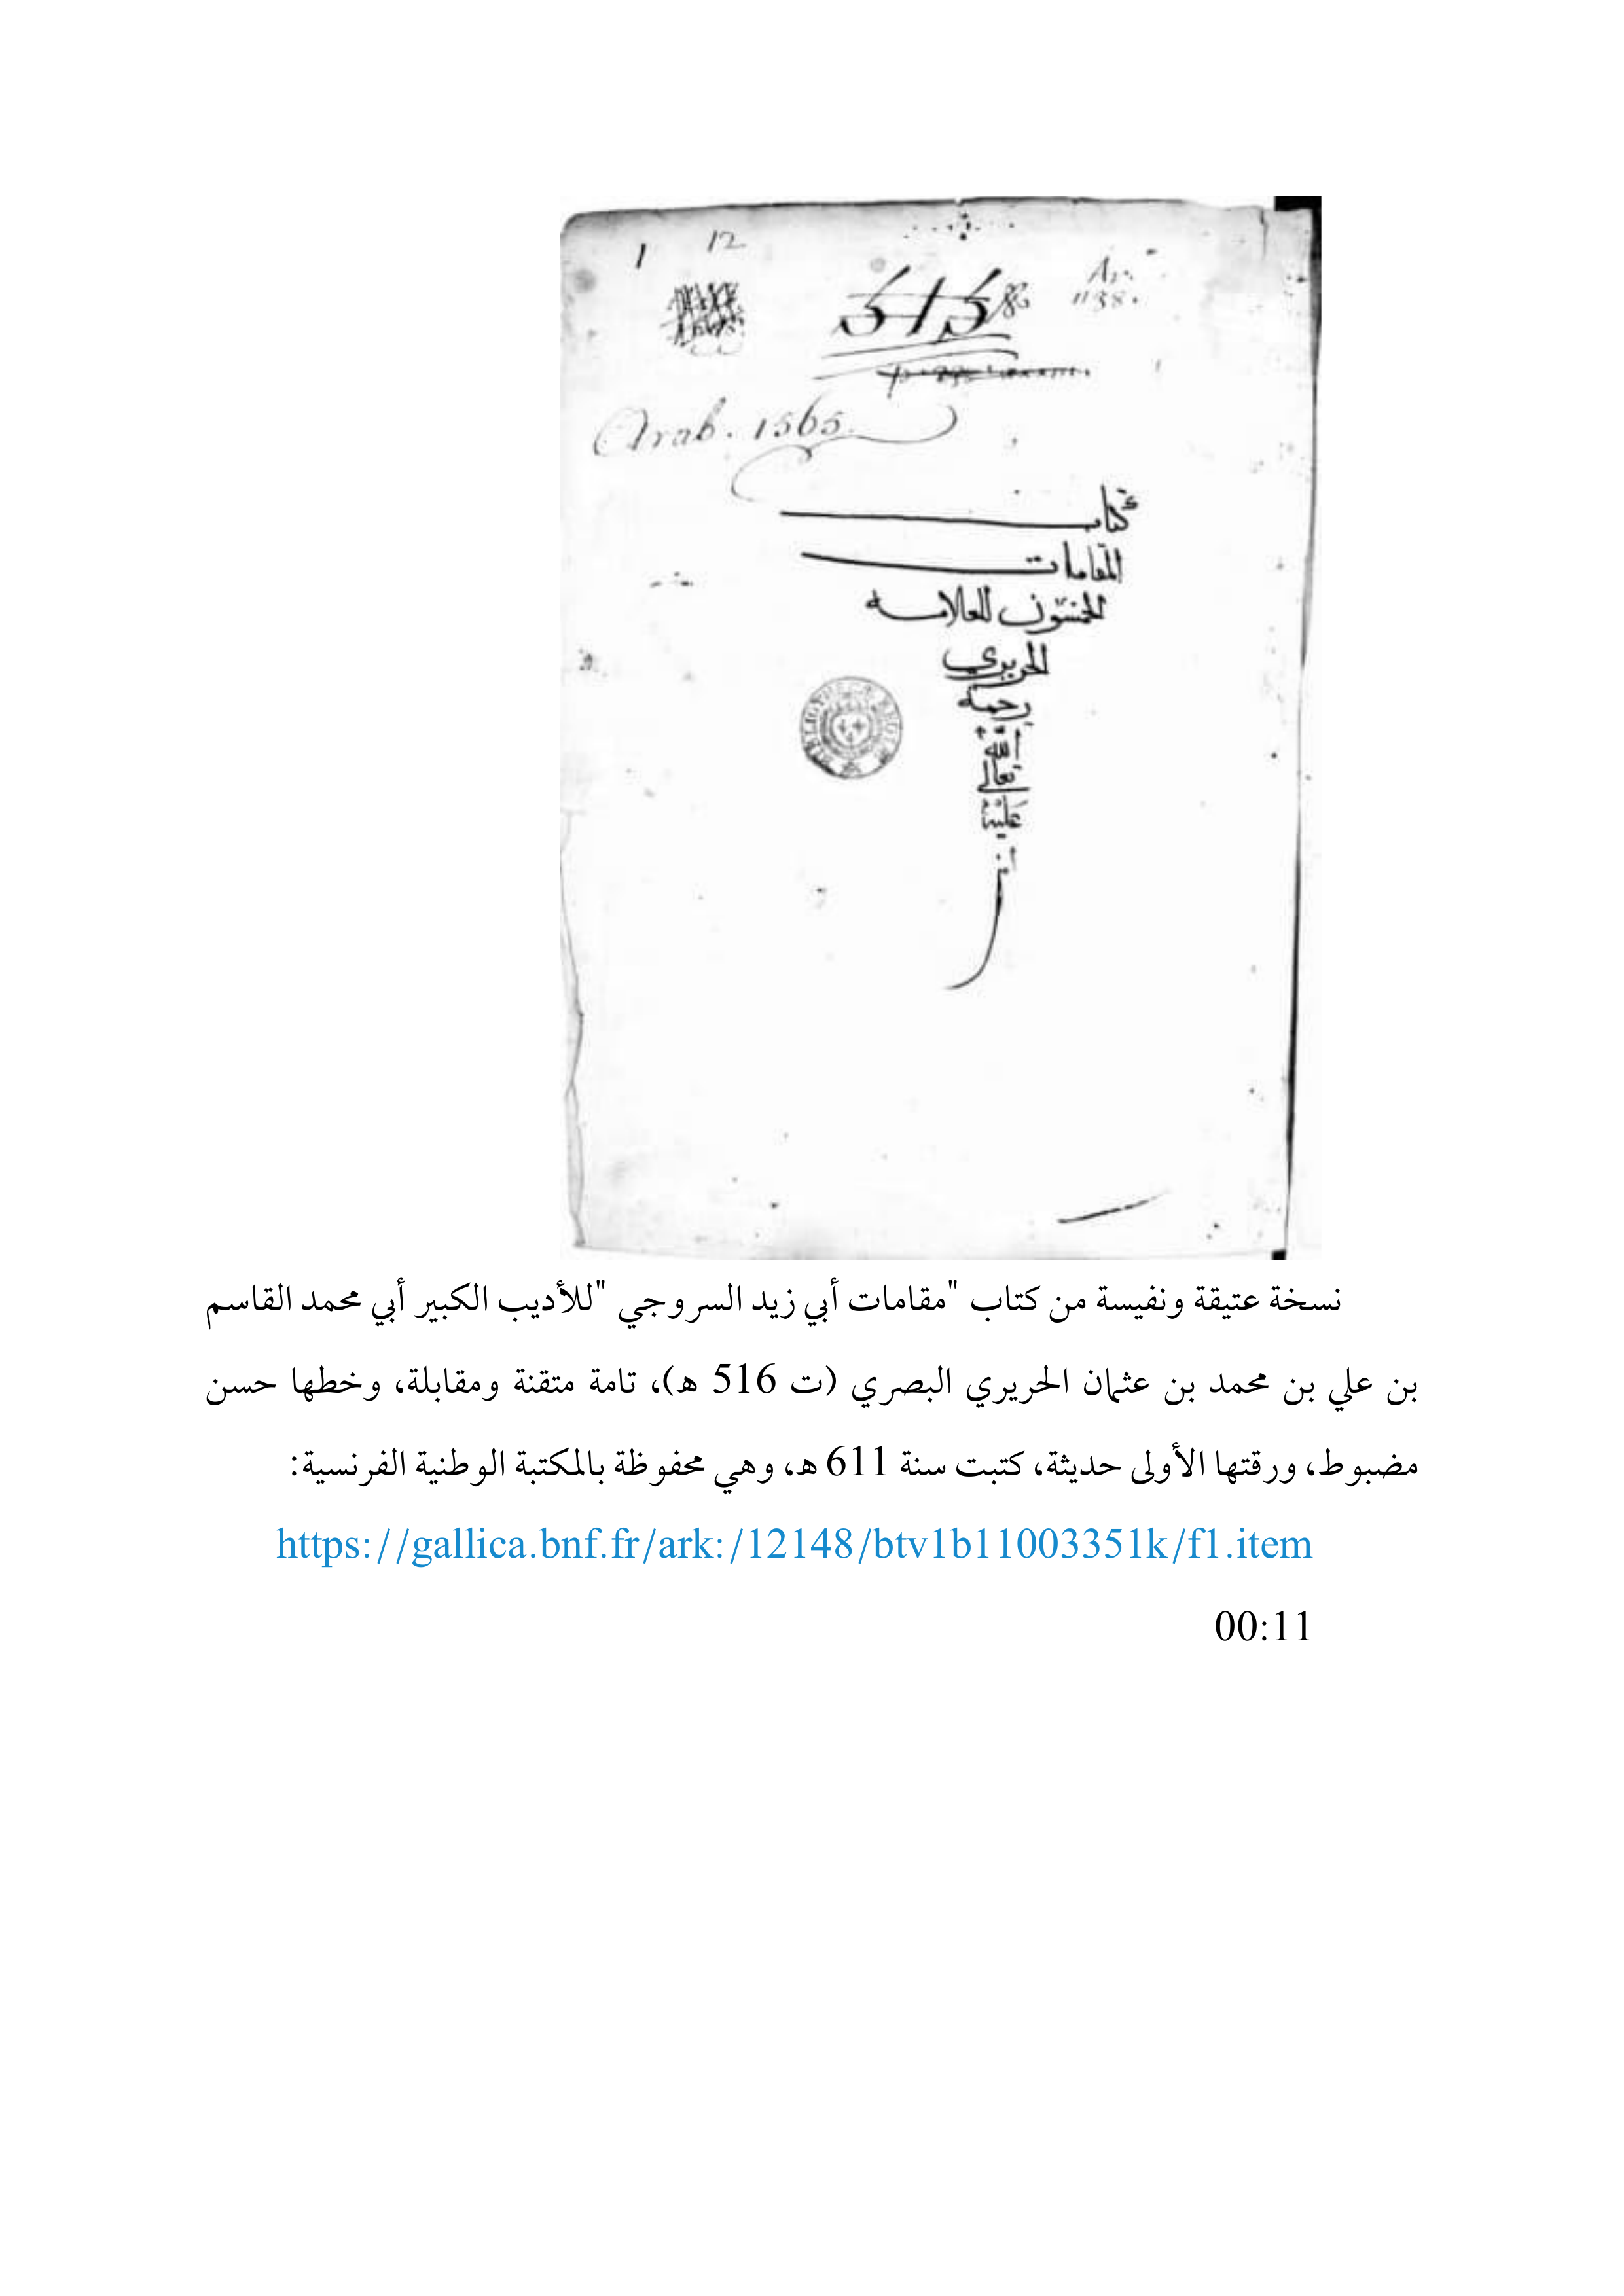 1 12
Ar.
1138.
515
Arab. 1565.
كتاب
المقامات
الخمسون للعلامه
الحريري
رحمة
الله
تعالى
عليه
نسخة عتيقة ونفيسة من كتاب "مقامات أبي زيد السروجي "للأديب الكبير أبي محمد القاسم
بن علي بن محمد بن عثمان الحريري البصري (ت 516 هـ)، تامة متقنة ومقابلة، وخطها حسن
مضبوط، ورقتها الأولى حديثة، كتبت سنة 611 هـ، وهي محفوظة بالمكتبة الوطنية الفرنسية:
https://gallica.bnf.fr/ark:/12148/btv1b11003351k/f1.item
00:11